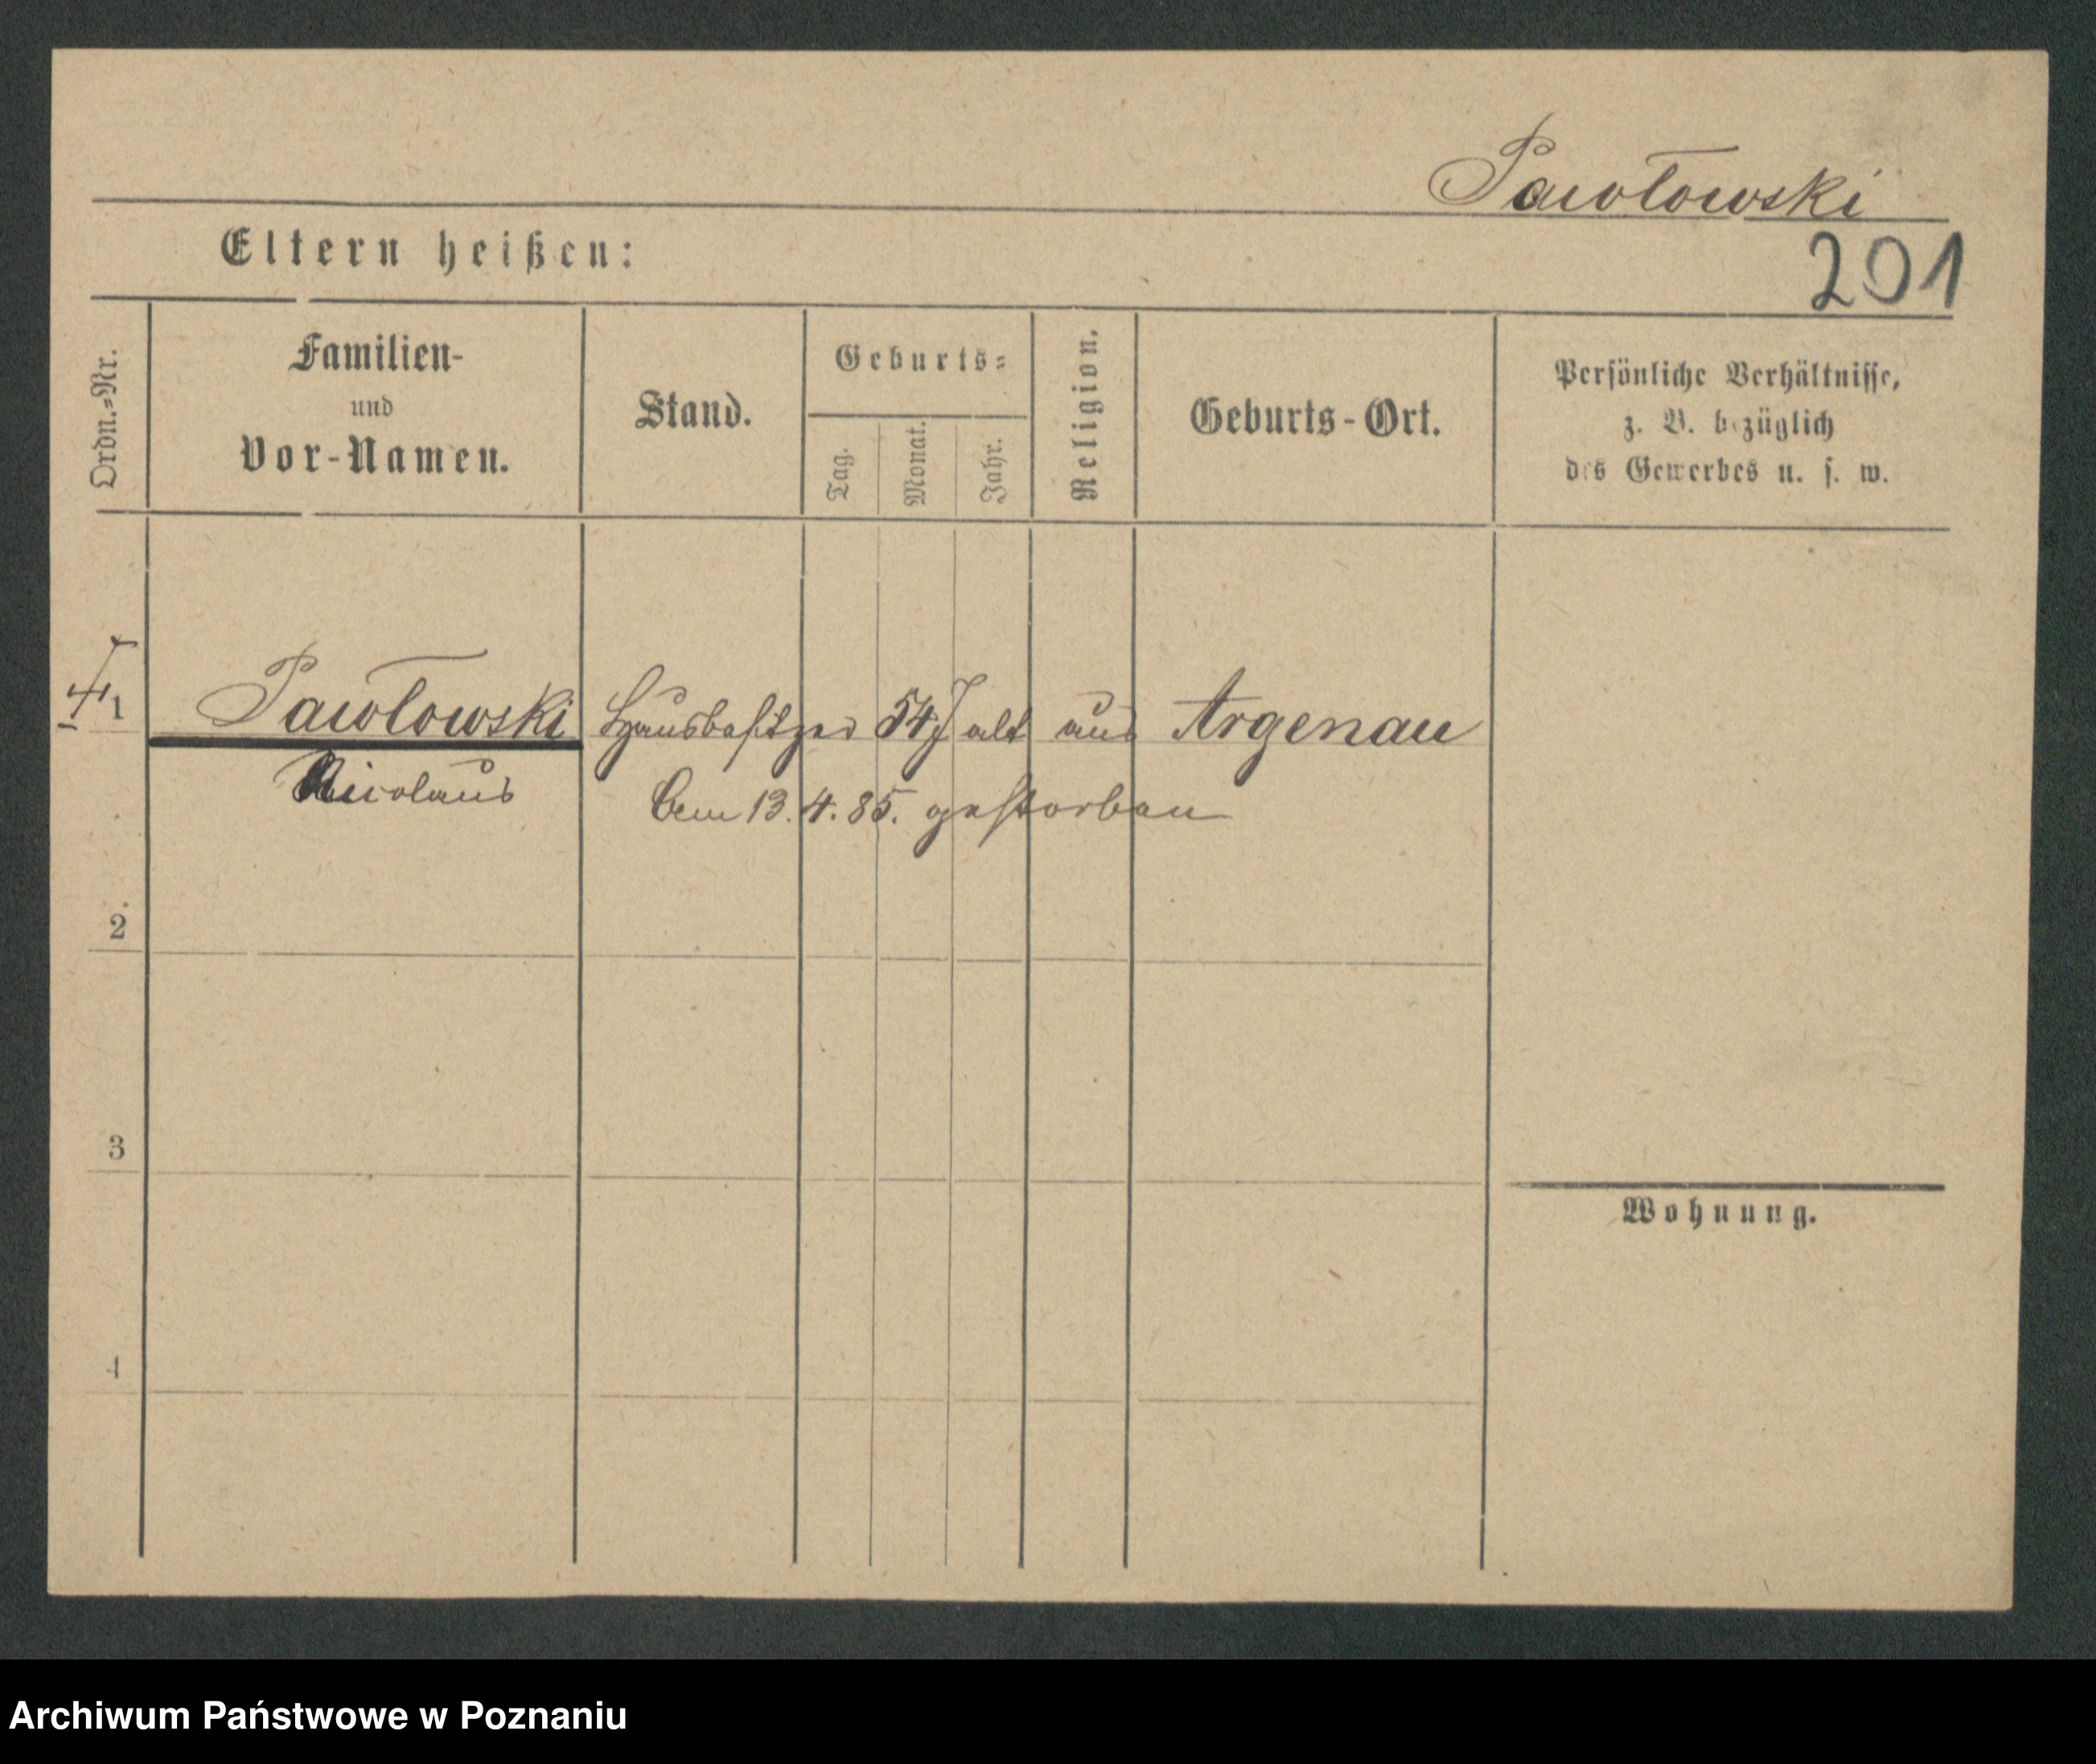 Pawłowski
Eltern heißen:
201
Ordn.-Nr.
Familien-
und
Vor-Namen.
Stand.
Geburts-
Tag.
Monat.
Jahr.
Religion.
Geburts-Ort.
Persönliche Verhältnisse,
z. B. bezüglich
des Gewerbes u. s. w.
1 Pawłowski Hausbesitzer 54 J alt aus Argenau
Nicolaus
Am 13.4.85. gestorben
2
3
Wohnung.
4
Archiwum Państwowe w Poznaniu